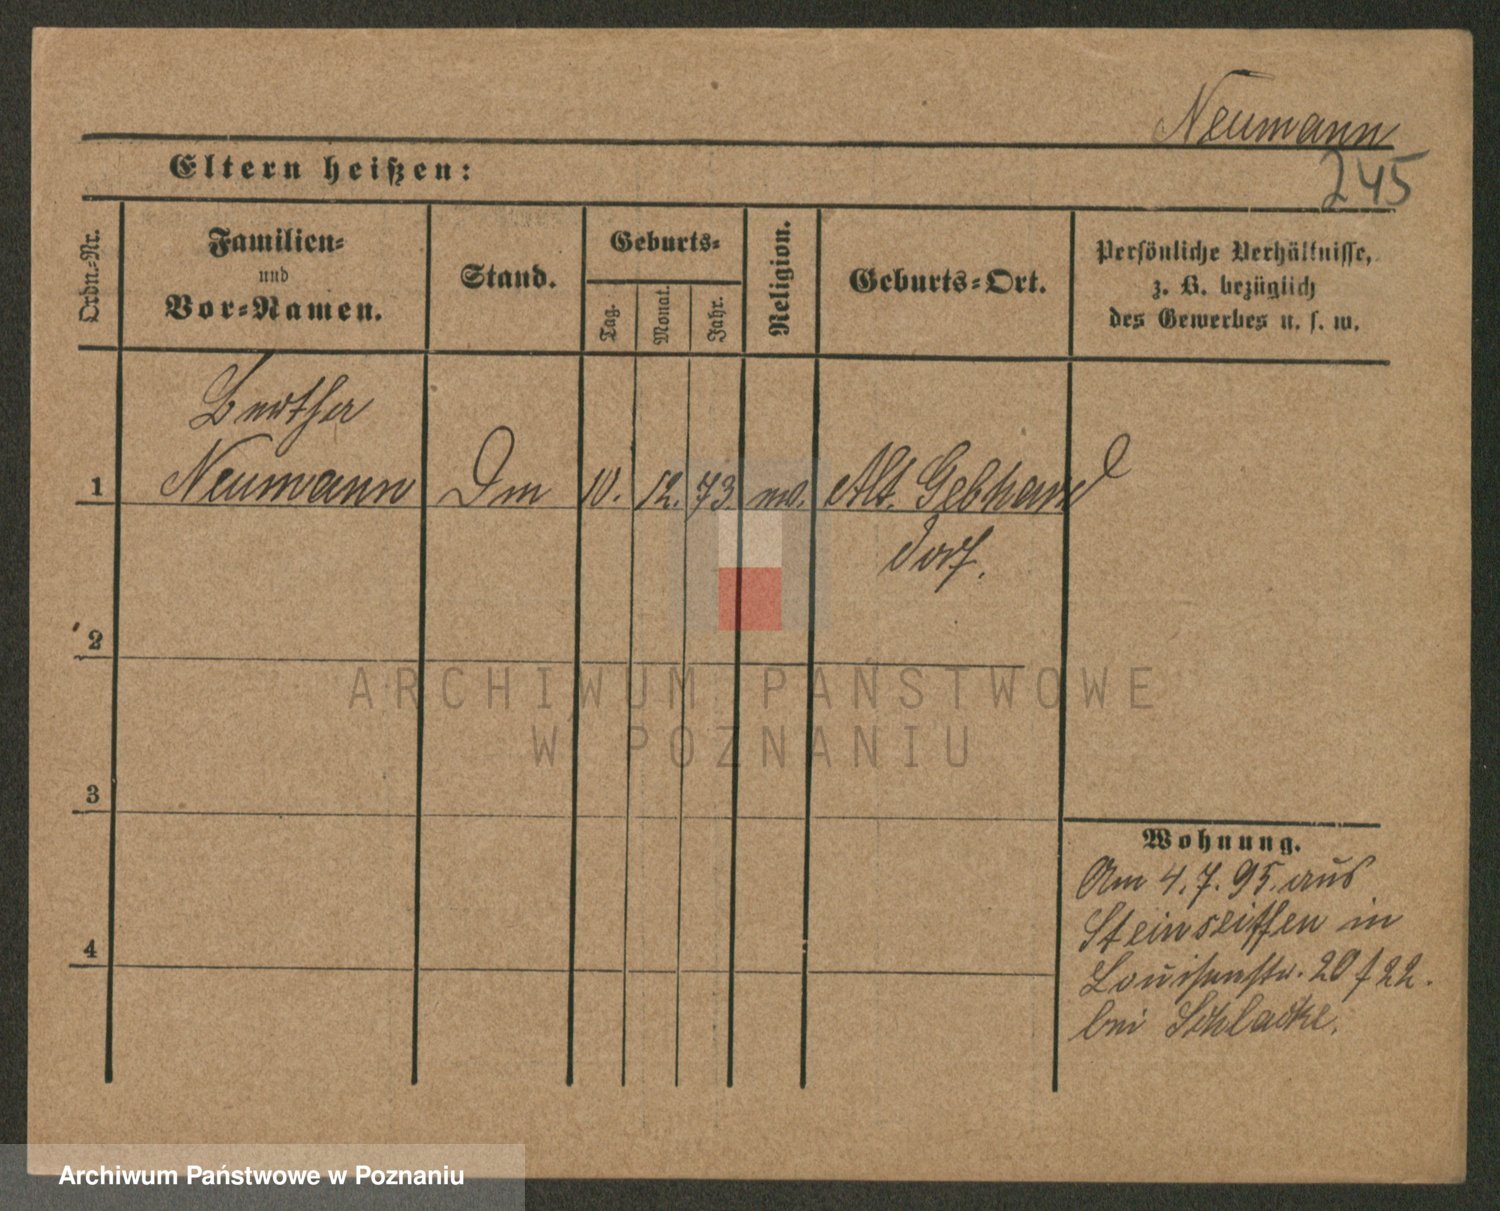 Neumann
245
Eltern heißen:
Ordn.-Nr.
Familien-
und
Vor-Namen.
Stand.
Geburts-
Tag.
Monat.
Jahr.
Religion.
Geburts-Ort.
Persönliche Verhältnisse,
z. B. bezüglich
des Gewerbes u. s. w.
Bertha
1 Neumann Dm 10. 12. 73. Alt. Gebhard
dorf.
2
3
4
Wohnung.
Am 4. 7. 95. aus
Steinseiffen in
Louisenstr. 20 f 22.
bei Schlacke.
ARCHIWUM PAŃSTWOWE
W POZNANIU
Archiwum Państwowe w Poznaniu